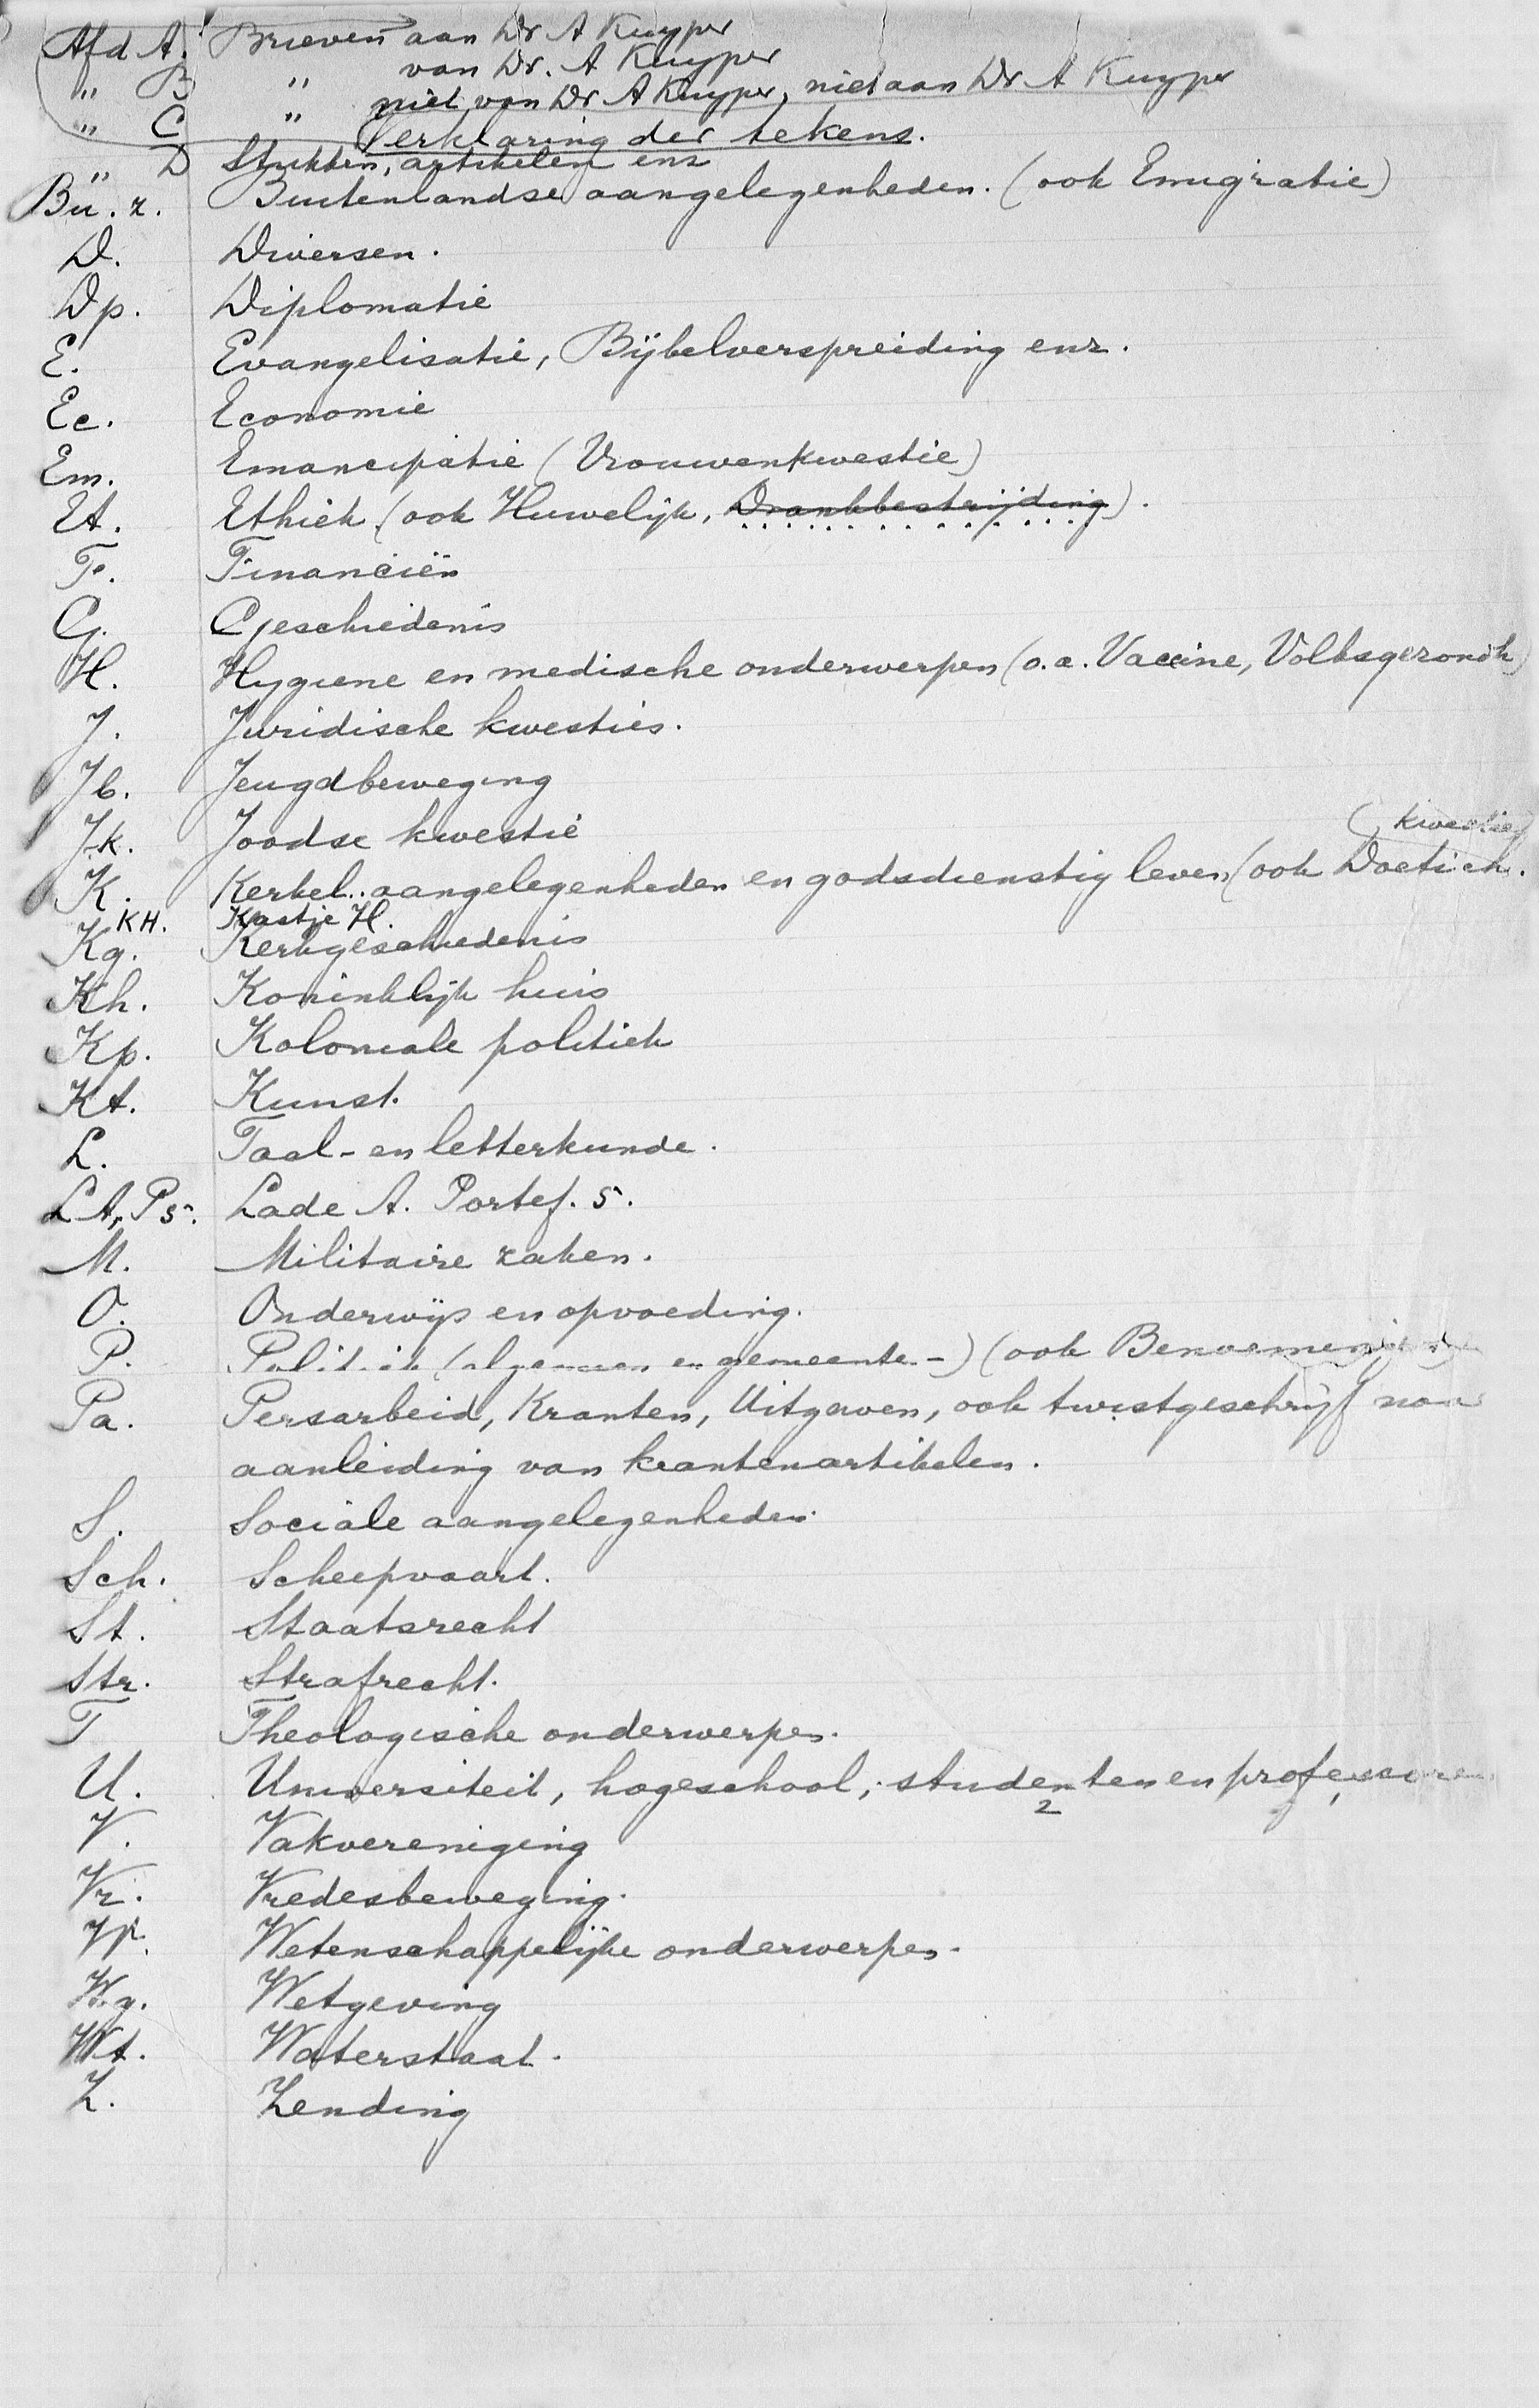 Afd A. Brieven aan Dr A Kuyper
" B " van Dr. A Kuyper
" C " niet van Dr A Kuyper, niet aan Dr A Kuyper
Verklaring der tekens.
" D Stukken, artikelen enz
Bu. z. Buitenlandse aangelegenheden. (ook Emigratie)
D. Diversen.
Dp. Diplomatie
E. Evangelisatie, Bijbelverspreiding enz.
Ec. Economie
Em. Emancipatie (Vrouwenkwestie)
Et. Ethiek (ook Huwelijk, Drankbestrijding).
F. Financiën
G. Geschiedenis
H. Hygiene en medische onderwerpen (o.a. Vaccine, Volksgezondh)
J. Juridische kwesties.
Jb. Jeugdbeweging
J.k. Joodse kwestie
(kwestie)
K. Kerkel. aangelegenheden en godsdienstig leven (ook Doetich.
KH. Kastje H.
Kg. Kerkgeschiedenis
Kh. Koninklijk huis
Kp. Koloniale politiek
Kt. Kunst.
L. Taal- en letterkunde.
L A, P 5. Lade A. Portef. 5.
M. Militaire zaken.
O. Onderwijs en opvoeding.
P. Politiek (algemeen en gemeente-) (ook Benoemingen
Pa. Persarbeid, Kranten, Uitgaven, ook twistgeschrijf naar
aanleiding van krantenartikelen.
S. Sociale aangelegenheden.
Sch. Scheepvaart.
St. Staatsrecht
Str. Strafrecht.
T Theologische onderwerpen.
U. Universiteit, hogeschool, studenten en professoren
2
V. Vakvereniging
Vr. Vredesbeweging.
W. Wetenschappelijke onderwerpen.
Wg. Wetgeving
Wt. Waterstaat.
Z. Zending